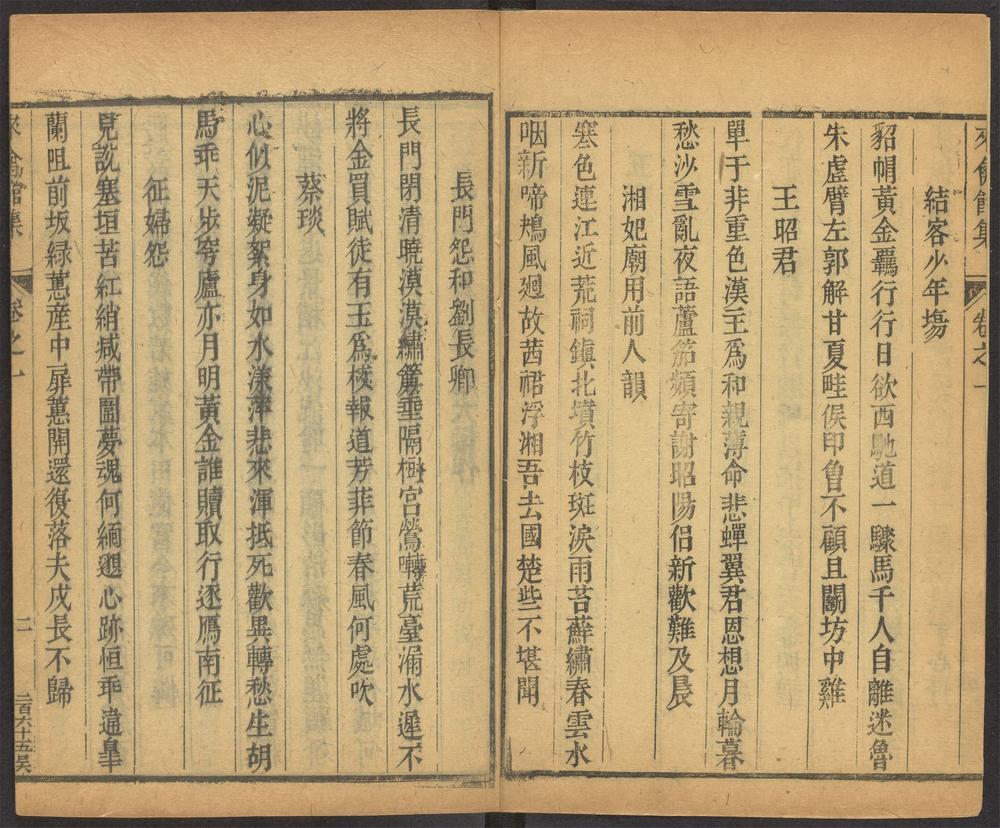 來禽館集
卷之一
結客少年場
貂帽黃金羈行行日欲西馳道一驟馬千人自離迷魯
朱虛臂左郭解甘夏畦侯印曾不顧且鬭坊中雞
王昭君
單于非重色漢主為和親薄命悲蟬翼君恩想月輪暮
愁沙雪亂夜語蘆笳頻寄謝昭陽侶新歡難及晨
湘妃廟用前人韻
塞色連江近荒祠鎮北墳竹枝斑淚雨苔蘚繡春雲水
咽新啼鴂風廻故茜裙浮湘吾去國楚些不堪聞
長門怨和劉長卿
長門閉清曉漠漠繡簾垂隔樹宮鶯囀荒臺漏水遲不
將金買賦徒有玉為椀報道芳菲節春風何處吹
蔡琰
心似泥凝絮身如水漾萍悲來渾抵死歡異轉愁生胡
馬乖天步穹廬亦月明黃金誰贖取行逐鴈南征
征婦怨
見說塞垣苦紅綃減帶圍夢魂何緬邈心跡恒乖違皐
蘭咀前坂綠蕙産中扉蕙開還復落夫戍長不歸
來禽館集
卷之一
二
二百六十五吴